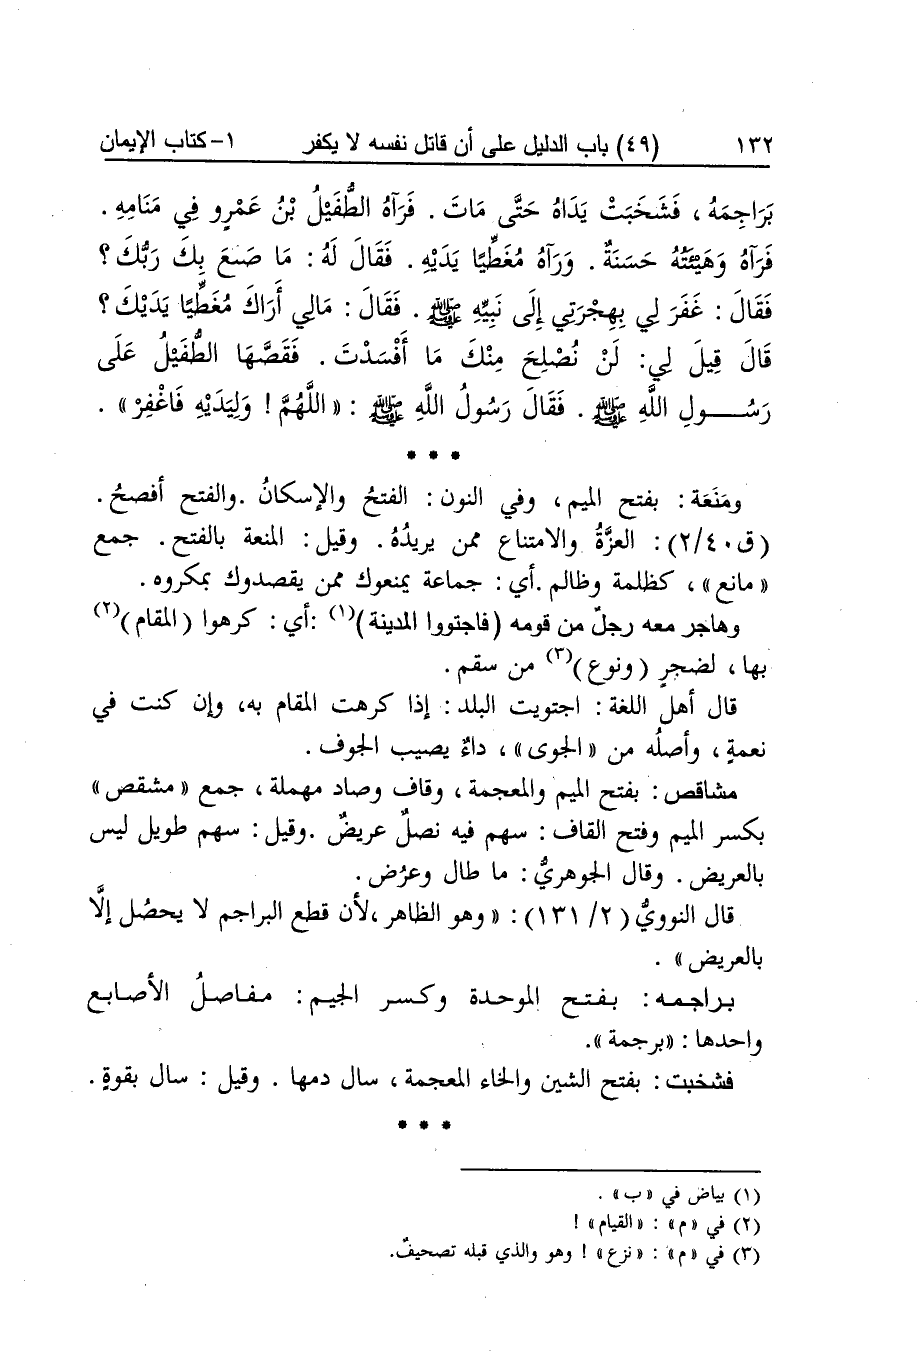 ١٣٢ (٤٩) باب الدليل على أن قاتل نفسه لا يكفر ١- كتاب الإيمان
بَرَاجِمَهُ ، فَشَخَبَتْ يَدَاهُ حَتَّى مَاتَ . فَرَآهُ الطُّفَيْلُ بْنُ عَمْرٍو فِي مَنَامِهِ .
فَرَآهُ وَهَيْئَتُهُ حَسَنَةٌ . وَرَآهُ مُغَطِّيًا يَدَيْهِ . فَقَالَ لَهُ : مَا صَنَعَ بِكَ رَبُّكَ ؟
فَقَالَ : غَفَرَ لِي بِهِجْرَتِي إِلَى نَبِيِّهِ ﷺ . فَقَالَ : مَالِي أَرَاكَ مُغَطِّيًا يَدَيْكَ ؟
قَالَ قِيلَ لِي: لَنْ نُصْلِحَ مِنْكَ مَا أَفْسَدْتَ . فَقَصَّهَا الطُّفَيْلُ عَلَى
رَسُـــولِ اللَّهِ ﷺ . فَقَالَ رَسُولُ اللَّهِ ﷺ : «اللَّهُمَّ ! وَلِيَدَيْهِ فَاغْفِرْ» .
* * *
ومَنَعَة : بفتح الميم ، وفي النون : الفتحُ والإسكانُ .والفتح أفصحُ .
(ق٢/٤٠) : العزَّةُ والامتناع ممن يريدُهُ . وقيل : المنعة بالفتح . جمع
«مانع» ، كظلمة وظالم .أي : جماعة يمنعوك ممن يقصدوك بمكروه .
وهاجر معه رجلٌ من قومه (فاجتووا المدينة)(١) :أي : كرهوا (المقام)(٢)
بها ، لضجرٍ (ونوع)(٣) من سقم .
قال أهل اللغة : اجتويت البلد : إذا كرهت المقام به، وإن كنت في
نعمةٍ ، وأصلُه من «الجوى» ، داءٌ يصيب الجوف .
مشاقص : بفتح الميم والمعجمة ، وقاف وصاد مهملة ، جمع «مشقص»
بكسر الميم وفتح القاف : سهم فيه نصلٌ عريضٌ .وقيل : سهم طويل ليس
بالعريض . وقال الجوهريُّ : ما طال وعرُض .
قال النوويُّ (٢/ ١٣١) : «وهو الظاهر ،لأن قطع البراجم لا يحصُل إلَّا
بالعريض» .
براجمه : بفتح الموحدة وكسر الجيم : مفاصلُ الأصابع
واحدها : «برجمة».
فشخبت : بفتح الشين والخاء المعجمة ، سال دمها . وقيل : سال بقوةٍ .
* * *
(١) بياض في «ب» .
(٢) في «م» : «القيام» !
(٣) في «م» : «نزع» ! وهو والذي قبله تصحيفٌ.